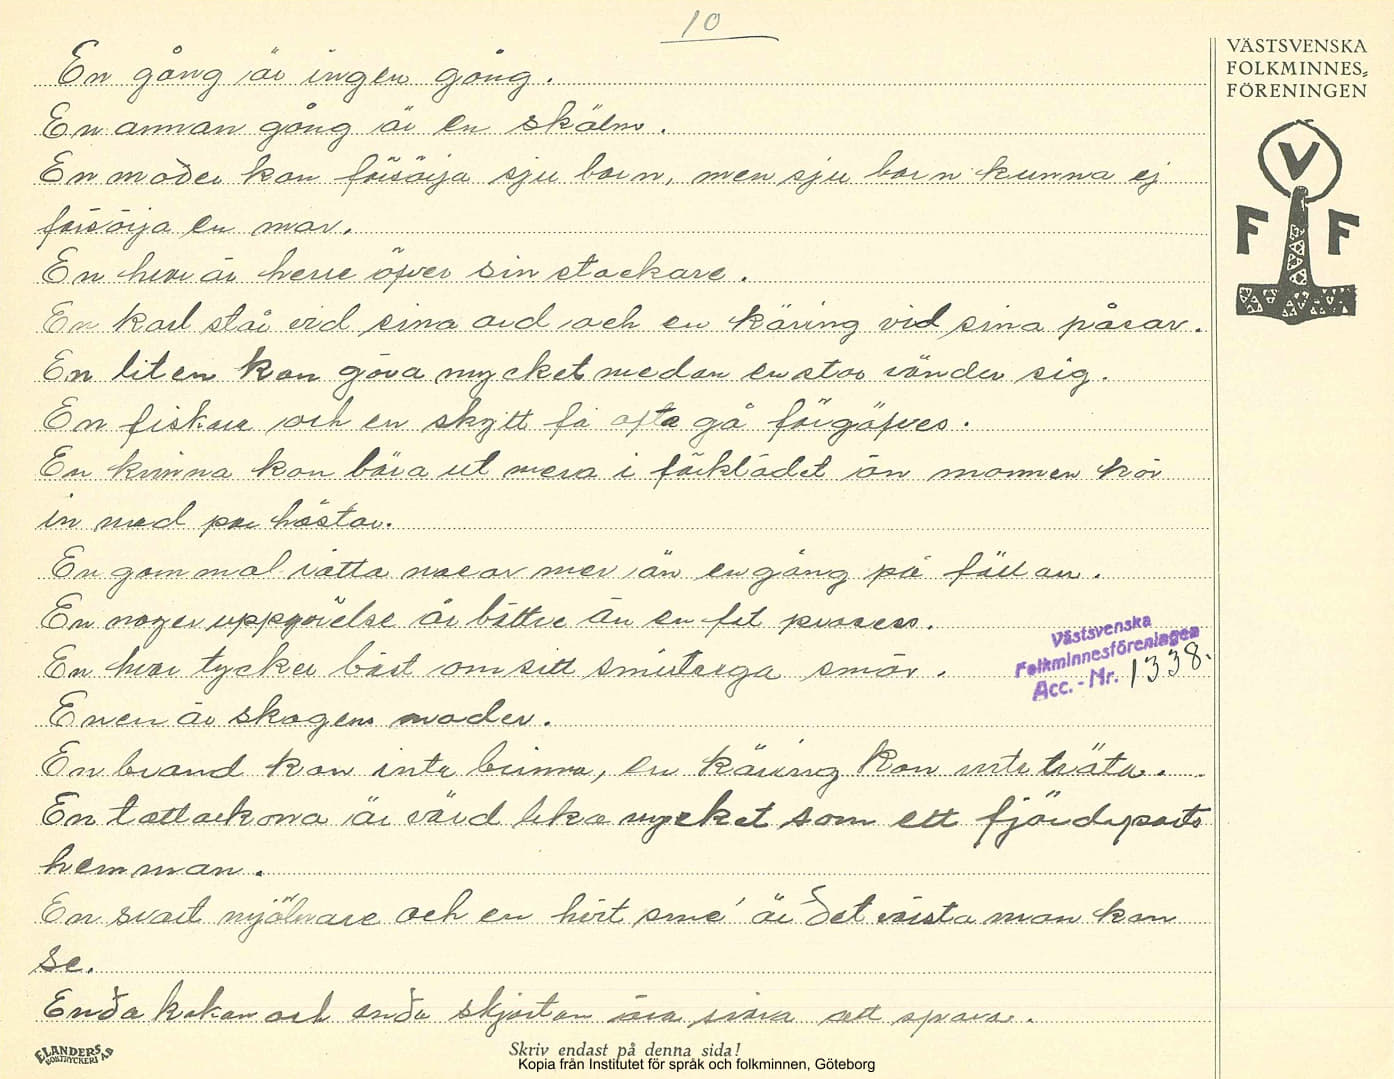 10
VÄSTSVENSKA
FOLKMINNES-
FÖRENINGEN
V
F F
En gång är ingen gång.
En annan gång är en skälm.
En moder kan försörja sju barn, men sju barn kunna ej
försörja en mor.
En hvar är herre öfver sin stackare.
En karl står vid sina ord och en käring vid sina påsar.
En liten kan göra mycket medan en stor vänder sig.
En fiskare och en skytt få ofta gå förgäfves.
En kvinna kan bära ut mera i förklädet än mannen kör
in med par hästar.
En gammal råtta nosar mer än en gång på fällan.
En mager uppgörelse är bättre än en fet process.
En hvar tycker bäst om sitt smutsiga smör.
Enen är skogens moder.
En brand kan inte brinna, en käring kan inte träta.
En tattarkona är värd lika mycket som ett fjärdeparts
hemman.
En svart mjölnare och en hvit sme' är det värsta man kan
se.
Enda kakan och enda skjortan äro svåra att spara.
Västsvenska
Folkminnesföreningen
Acc. - Nr. 1338.
ELANDERS
BOKTRYCKERI AB
Skriv endast på denna sida!
Kopia från Institutet för språk och folkminnen, Göteborg